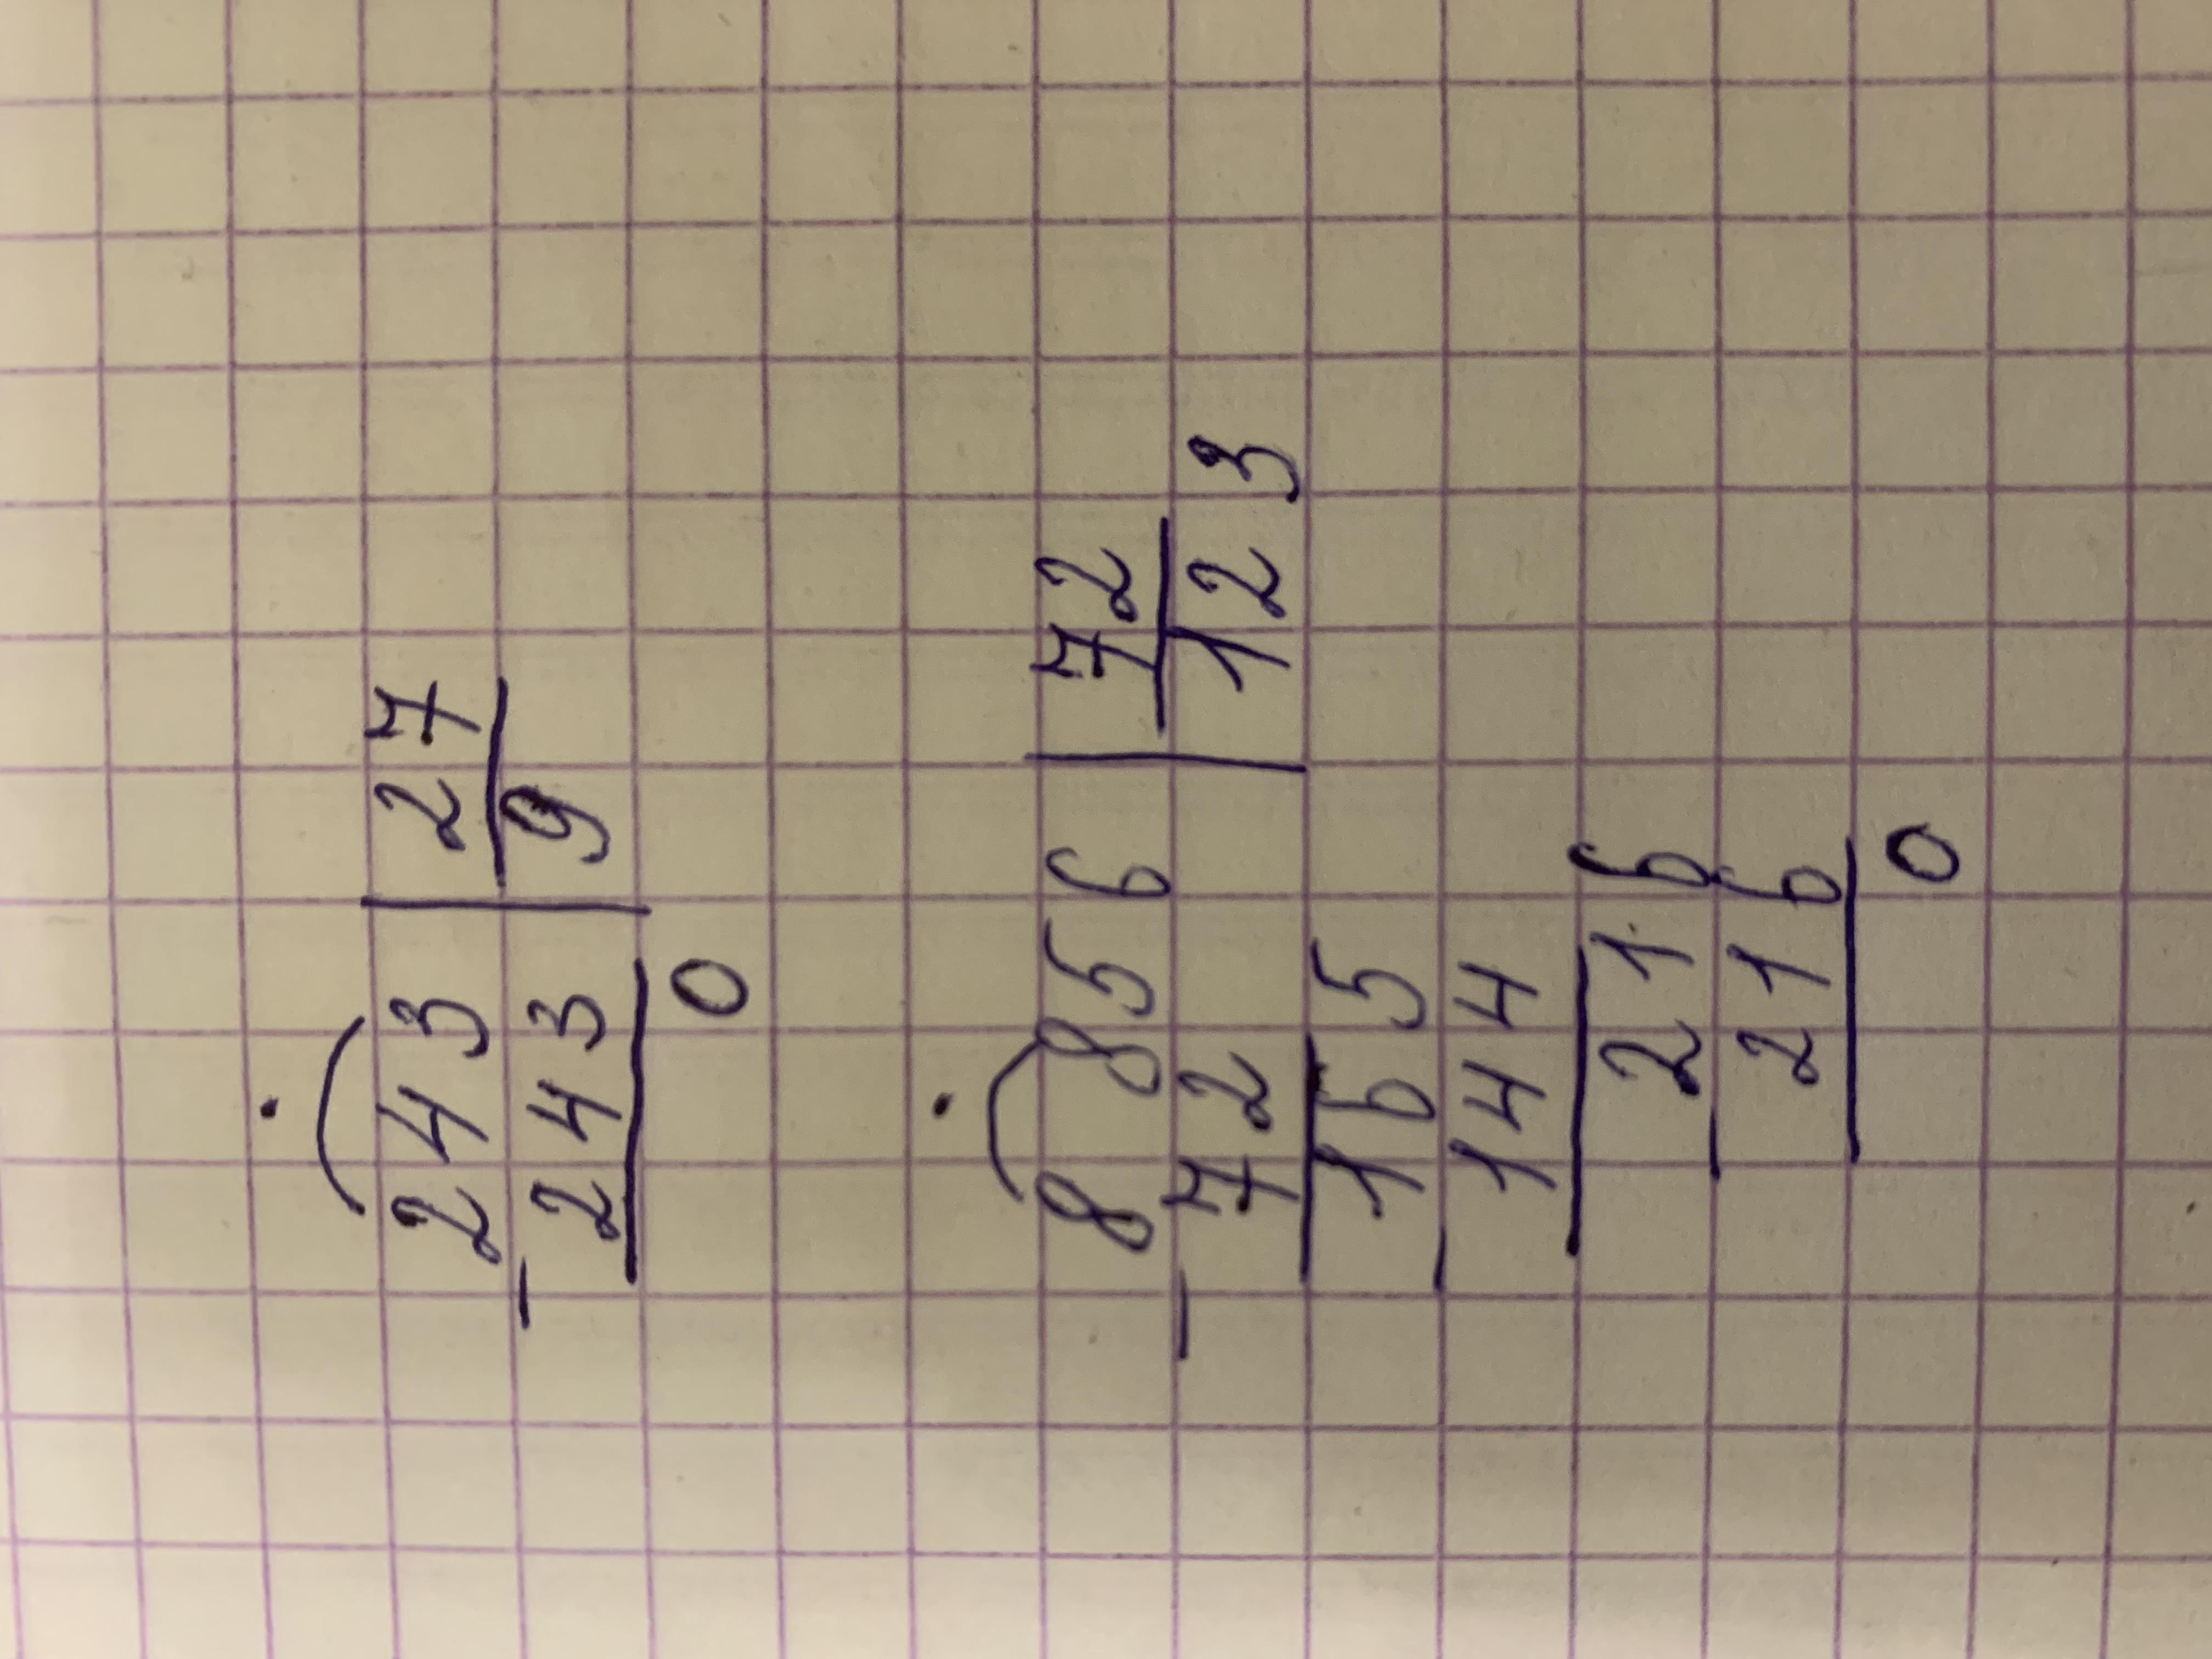 243 | 27
- 243 | 9
0
8856 | 72
- 72 | 123
- 165
144
- 216
216
0